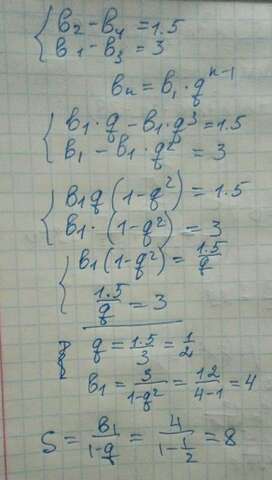 { в₂ - в₄ = 1.5
в₁ - в₃ = 3
вₙ = в₁ · q^(n-1)
{ в₁ · q - в₁ · q³ = 1.5
в₁ - в₁ · q² = 3
{ в₁q (1 - q²) = 1.5
в₁ · (1 - q²) = 3
{ в₁ (1 - q²) = 1.5/q
1.5/q = 3
q = 1.5/3 = 1/2
в₁ = 3/(1-q²) = 12/(4-1) = 4
S = в₁/(1-q) = 4/(1 - 1/2) = 8